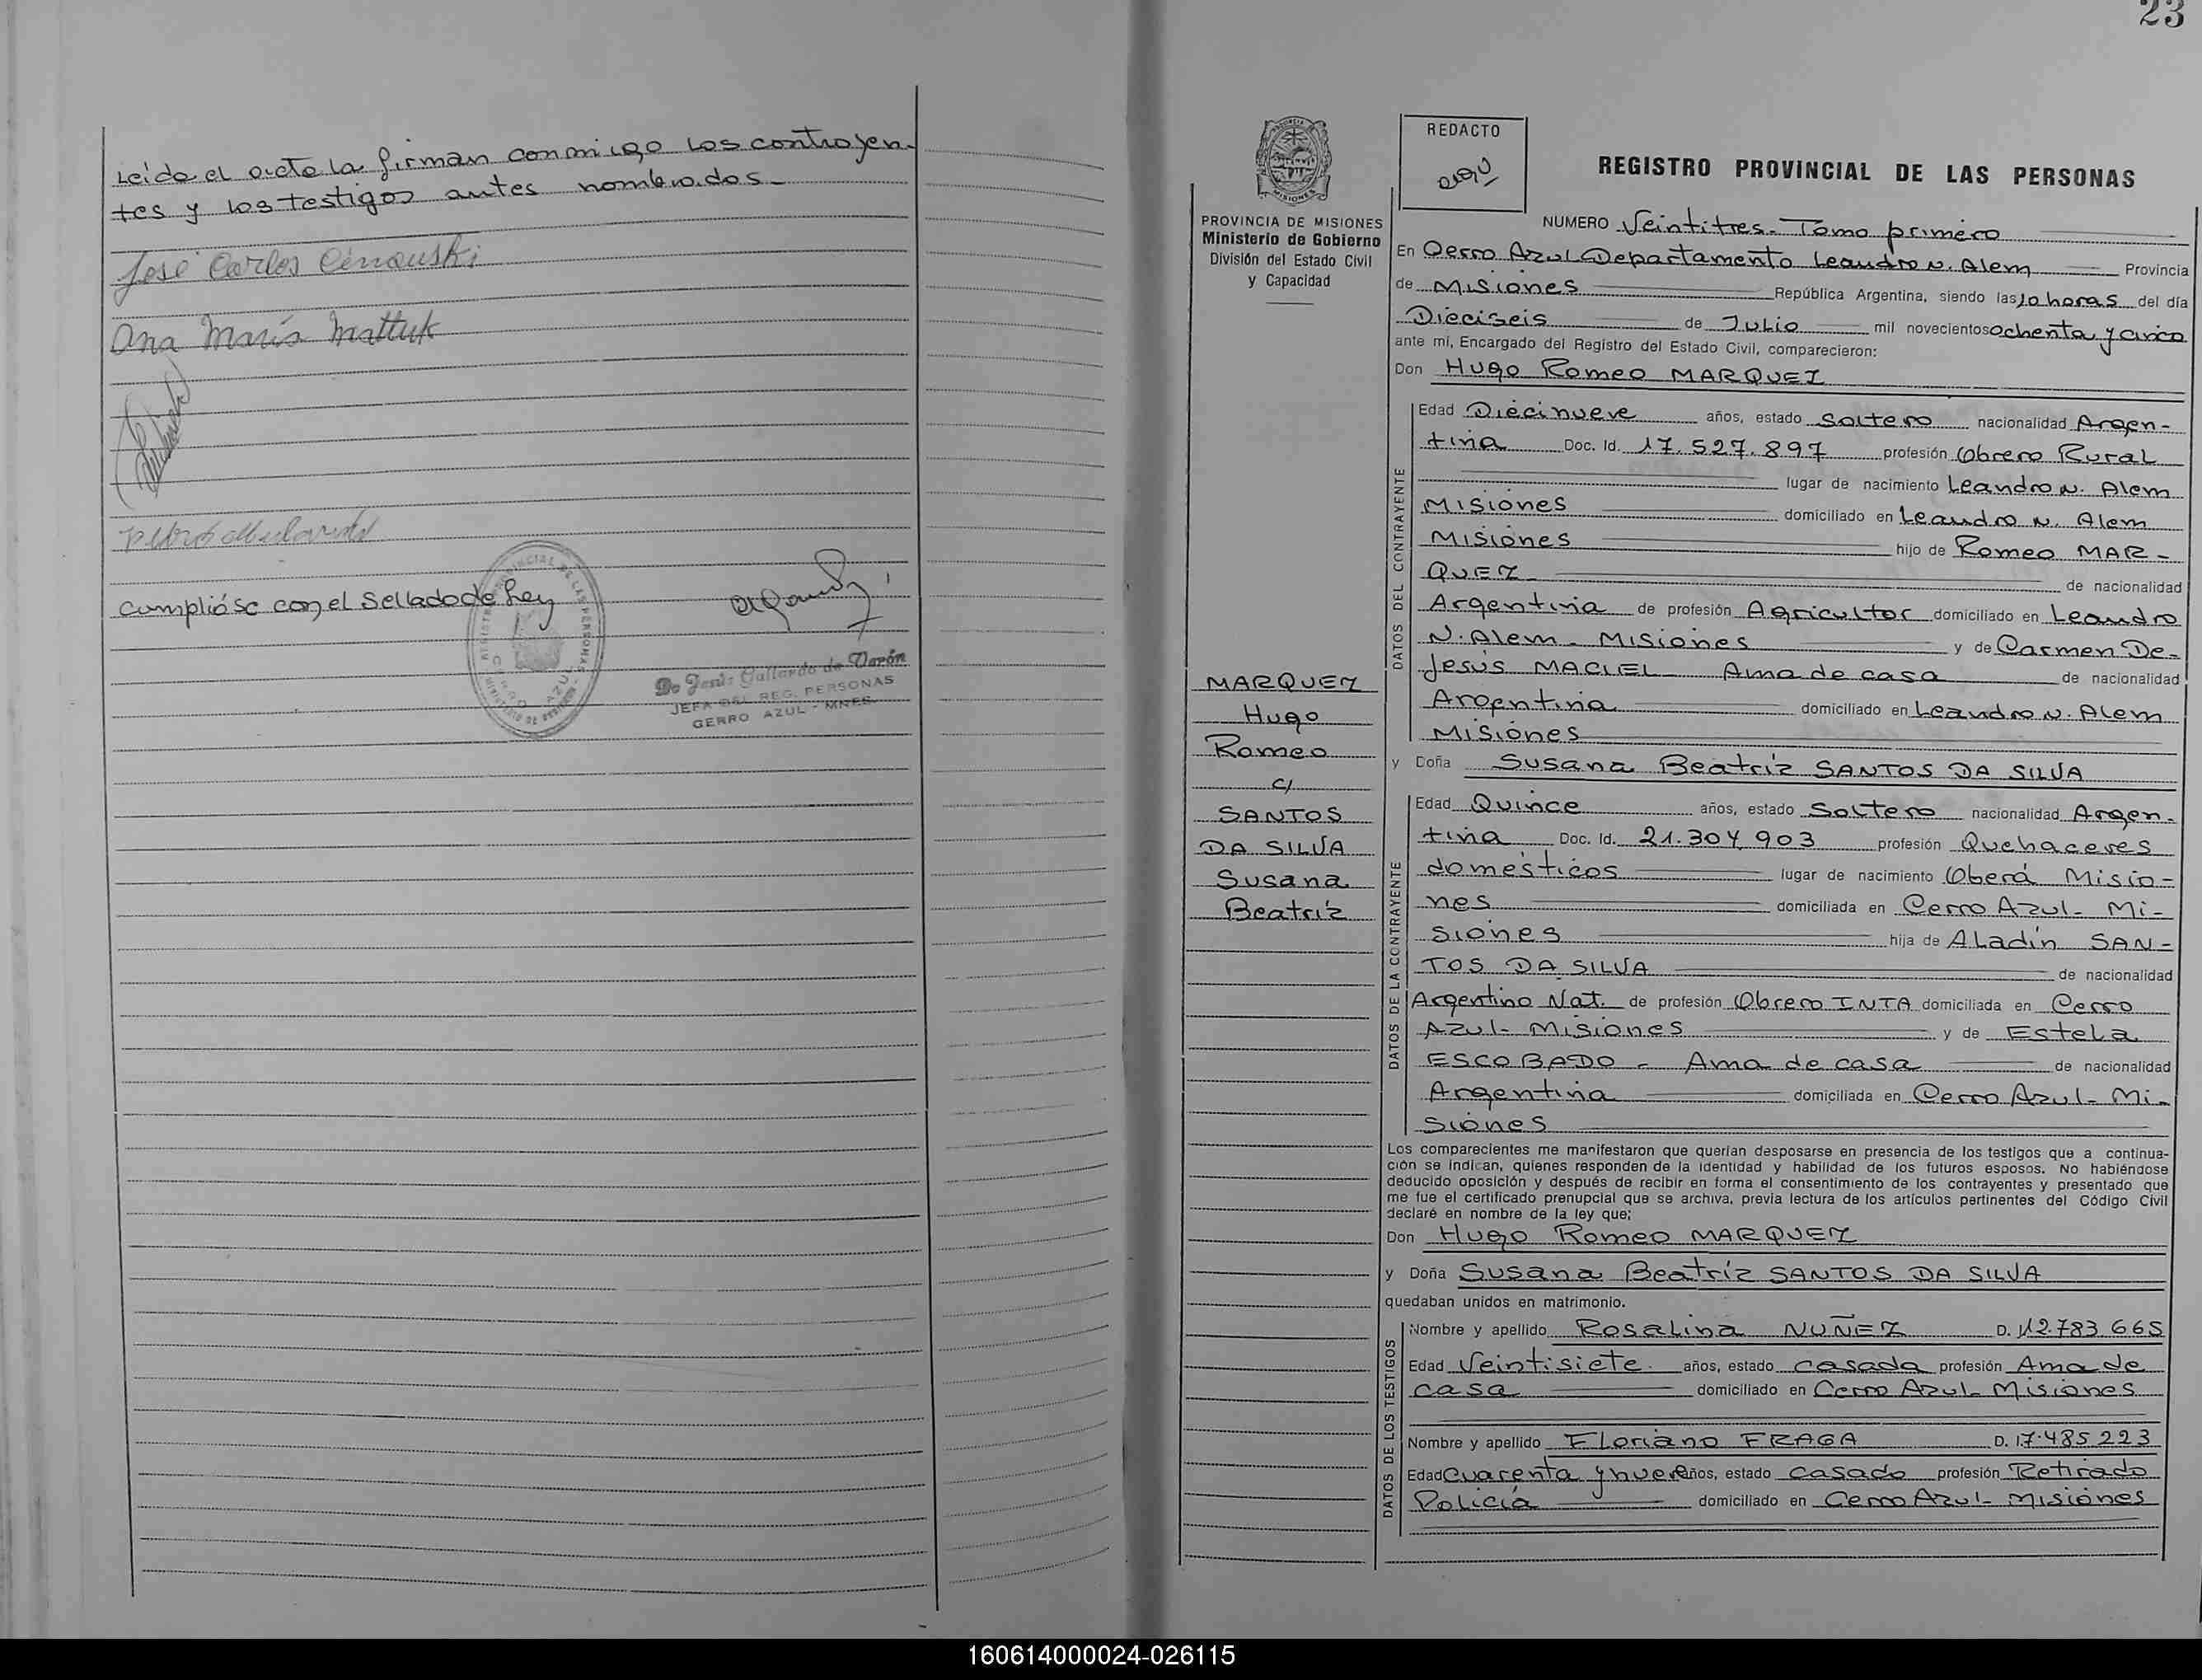 Leída el acta la firman conmigo los contrayen-
tes y los testigos antes nombrados.-
José Carlos
Ana María Mattuk
Cumplióse con el Sellado de Ley
JEFA DEL REG. PERSONAS
CERRO AZUL - MNES.
23
PROVINCIA DE MISIONES
Ministerio de Gobierno
División del Estado Civil
y Capacidad
MARQUEZ
Hugo
Romeo
c/
SANTOS
DA SILVA
Susana
Beatriz
REDACTO
REGISTRO PROVINCIAL DE LAS PERSONAS
NUMERO Veintitres - Tomo primero
En Cerro Azul Departamento Leandro N. Alem Provincia
de Misiones República Argentina, siendo las 10 horas del día
Dieciseis de Julio mil novecientos ochenta y cinco
ante mí, Encargado del Registro del Estado Civil, comparecieron:
Don Hugo Romeo MARQUEZ
DATOS DEL CONTRAYENTE
Edad Diecinueve años, estado Soltero nacionalidad Argen-
tina Doc. Id. 17.527.897 profesión Obrero Rural
lugar de nacimiento Leandro N. Alem
Misiones domiciliado en Leandro N. Alem
Misiones hijo de Romeo MAR-
QUEZ de nacionalidad
Argentina de profesión Agricultor domiciliado en Leandro
N. Alem - Misiones y de Carmen De-
Jesús MACIEL Ama de casa de nacionalidad
Argentina domiciliado en Leandro N. Alem
Misiones
y Doña Susana Beatriz SANTOS DA SILVA
DATOS DE LA CONTRAYENTE
Edad Quince años, estado Soltero nacionalidad Argen-
tina Doc. Id. 21.304.903 profesión Quehaceres
domésticos lugar de nacimiento Oberá Misio-
nes domiciliada en Cerro Azul - Mi-
siones hija de Aladín SAN-
TOS DA SILVA de nacionalidad
Argentino Nat. de profesión Obrero INTA domiciliada en Cerro
Azul - Misiones y de Estela
ESCOBADO - Ama de casa de nacionalidad
Argentina domiciliada en Cerro Azul - Mi-
siones
Los comparecientes me manifestaron que querían desposarse en presencia de los testigos que a continua-
ción se indican, quienes responden de la identidad y habilidad de los futuros esposos. No habiéndose
deducido oposición y después de recibir en forma el consentimiento de los contrayentes y presentado que
me fue el certificado prenupcial que se archiva, previa lectura de los artículos pertinentes del Código Civil
declaré en nombre de la ley que;
Don Hugo Romeo MARQUEZ
y Doña Susana Beatriz SANTOS DA SILVA
quedaban unidos en matrimonio.
DATOS DE LOS TESTIGOS
Nombre y apellido Rosalina NUÑEZ D. 12.783.665
Edad Veintisiete años, estado casada profesión Ama de
casa domiciliado en Cerro Azul - Misiones
Nombre y apellido Floriano FRAGA D. 17.485.223
Edad Cuarenta y nueve años, estado casado profesión Retirado
Policía domiciliado en Cerro Azul - Misiones
160614000024-026115